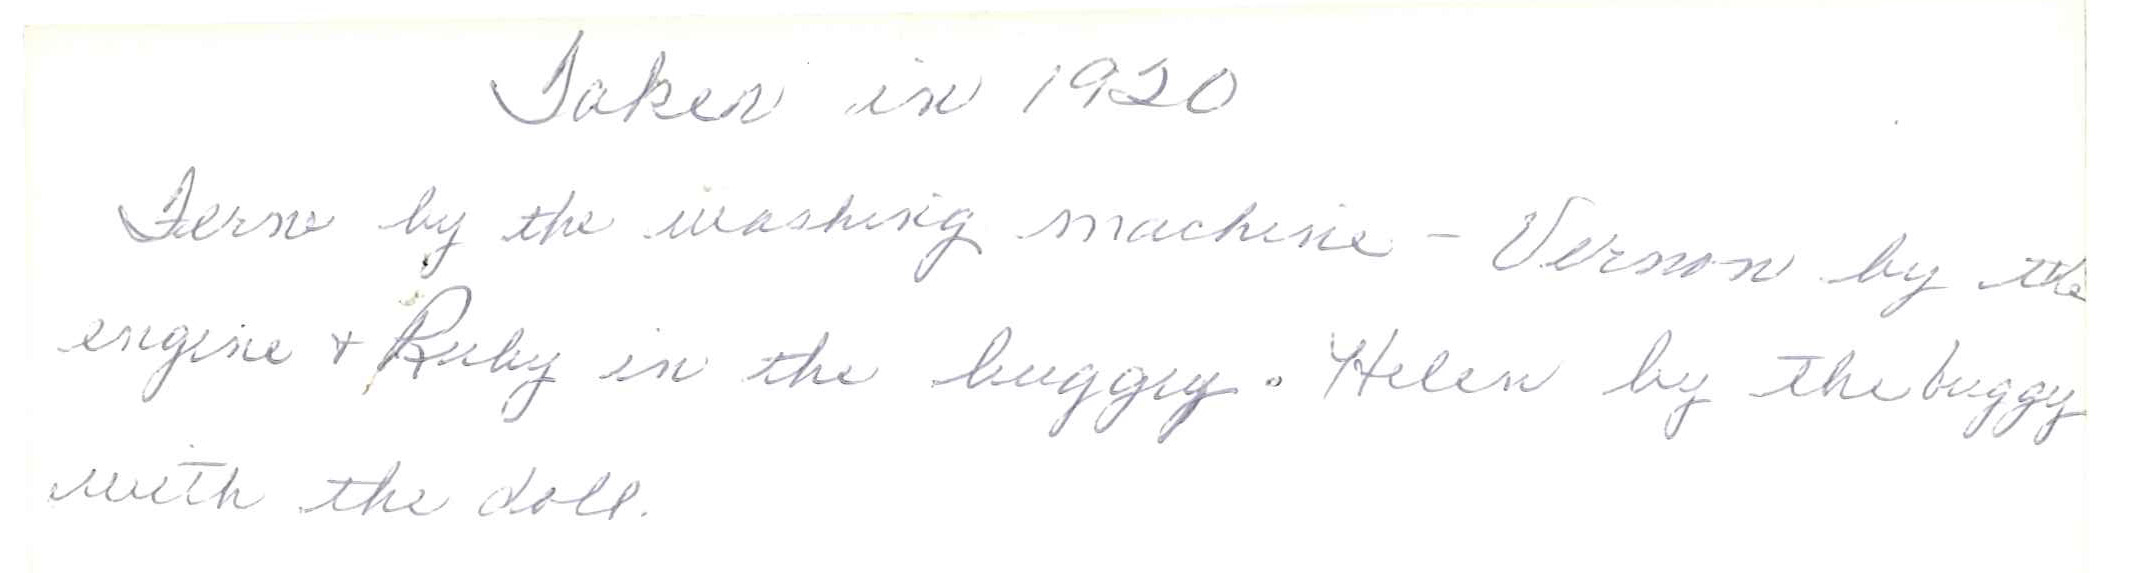 Taken in 1920
Fern by the washing machine - Vernon by the
engine + Ruby in the buggy. Helen by the buggy
with the doll.